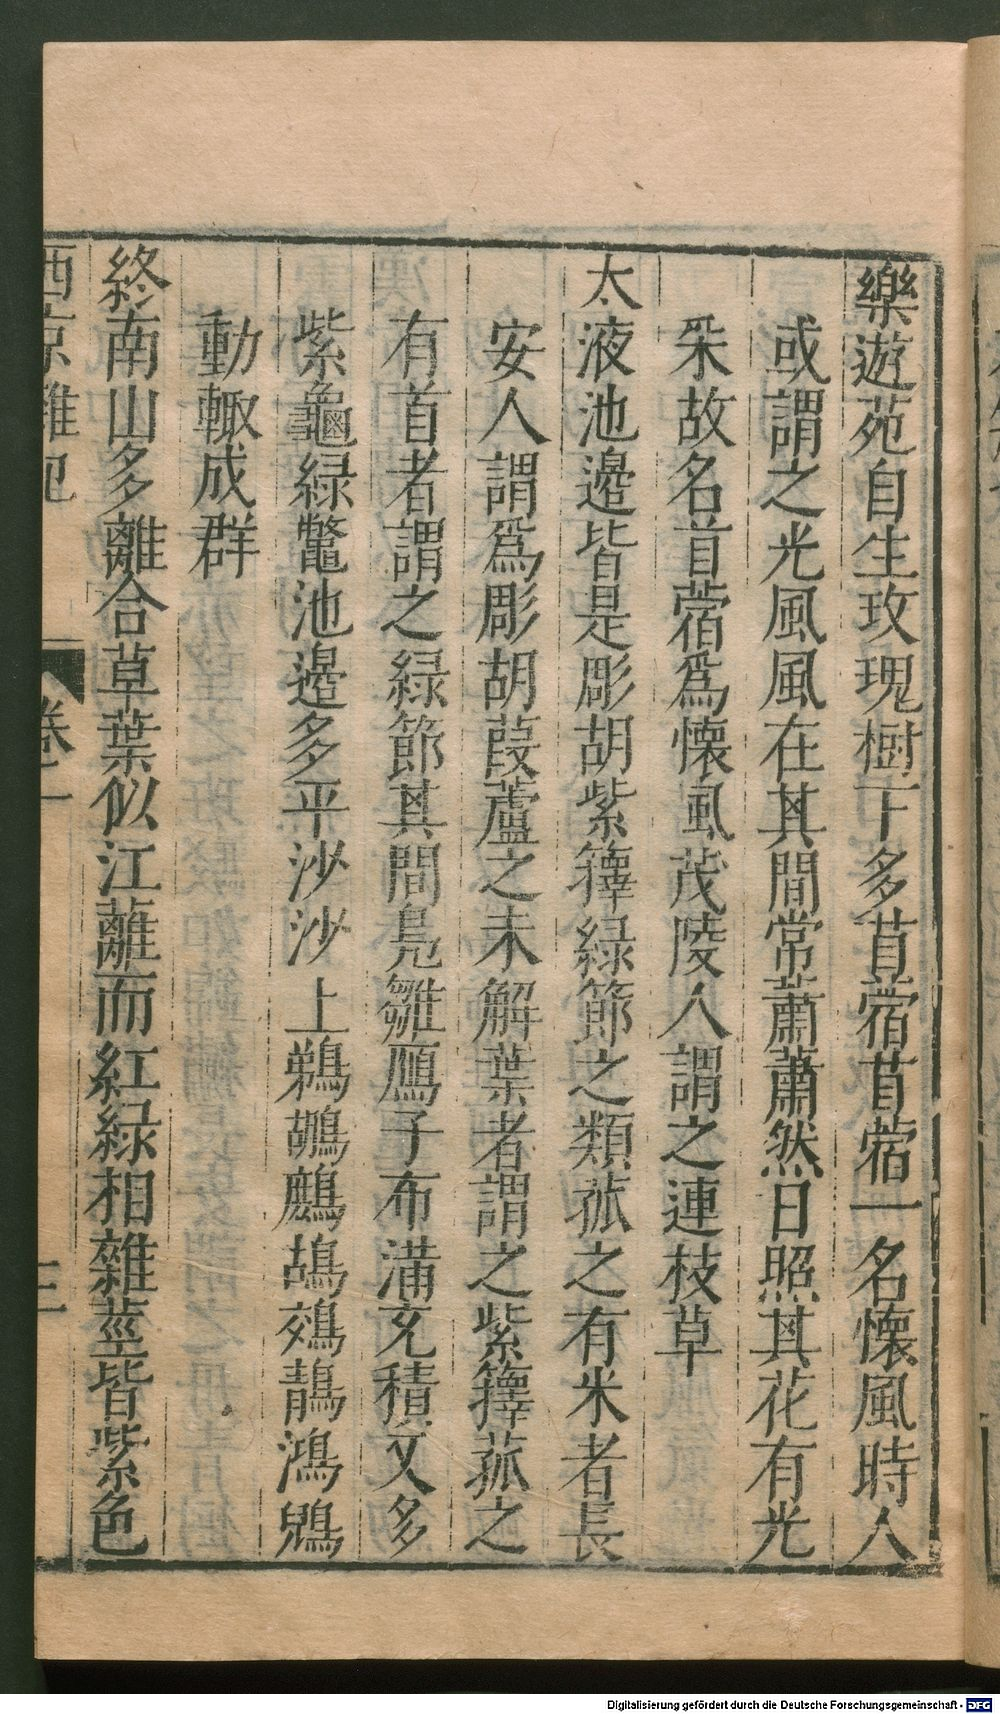 樂遊苑自生玫瑰樹下多苜蓿苜蓿一名懷風時人
或謂之光風風在其間常蕭蕭然日照其花有光
采故名苜蓿爲懷風茂陵人謂之連枝草
太液池邊皆是彫胡紫籜綠節之類菰之有米者長
安人謂爲彫胡葭蘆之未解葉者謂之紫籜菰之
有首者謂之綠節其間鳧雛鴈子布滿充積又多
紫龜綠鼈池邊多平沙沙上鵜鶘鷓鴣鵁鶄鴻鶂
動輙成群
終南山多離合草葉似江蘺而紅綠相雜莖皆紫色
西京雜记 卷一 三
Digitalisierung gefördert durch die Deutsche Forschungsgemeinschaft - DFG